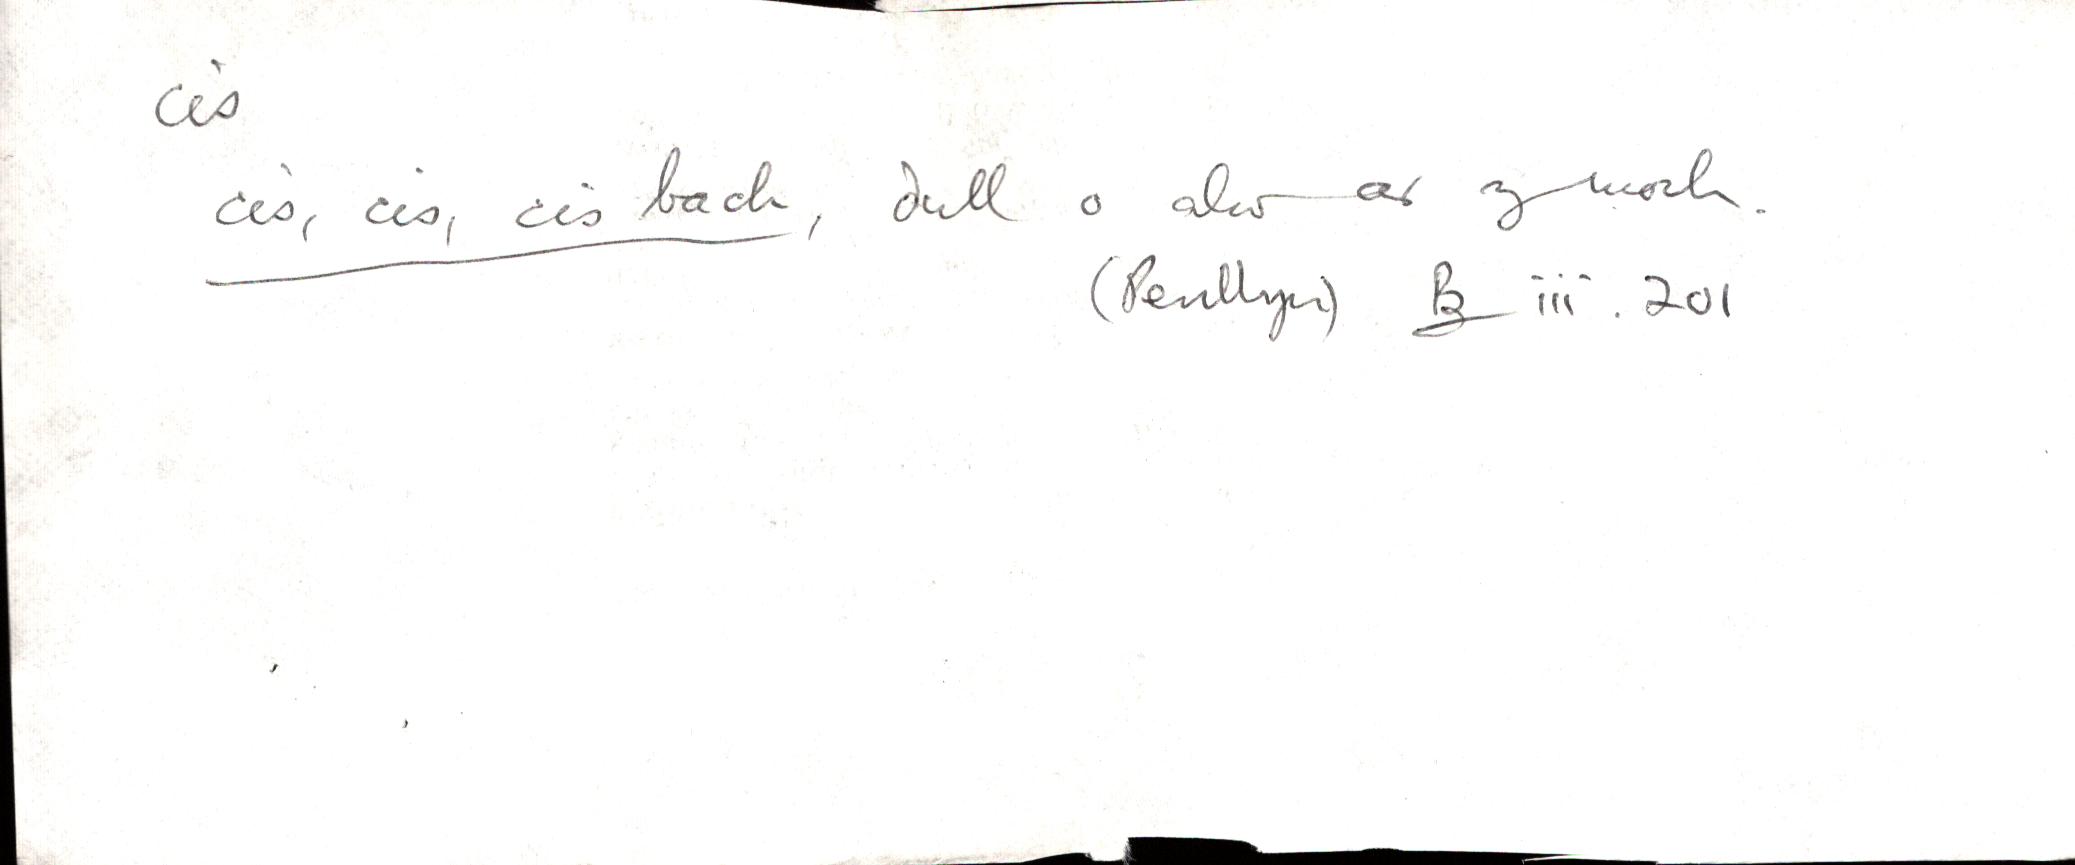 cis
cis, cis, cis bach, dull o alw ar y moch.
(Penllyn) B iii. 201